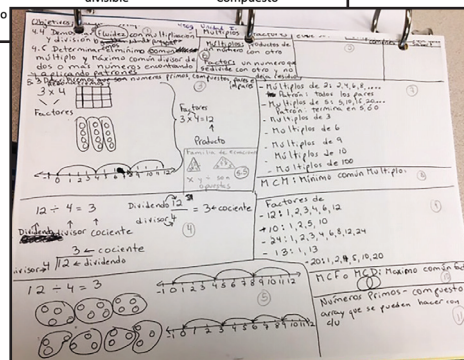 divisible
compuesto
o
Objetivos:
4.4 Demo fluidez con multiplicación
y división
4.5 Determinar el mínimo
múltiplo y máximo común divisor de
dos o más números encontrando
y aplicando patrones
5.3 son números primos, compuestos, pares e
impares
Múltiplos
Múltiplos: productos de
un número con otro
Factors: un numero que
se divide con otro y no
deja residuo
3 x 4
Factores
-1 0 1 2 3 4 5 6 7 8 9 10 11 12
Factores
3 x 4 = 12
Producto
Familia de
x y ÷ son
opuestos
- Múltiplos de 2: 2, 4, 6, 8, ....
Patrón: todos los pares
- Múltiplos de 5: 5, 10, 15, 20....
Patrón: termina en 5, ó 0
- Múltiplos de 3
- Múltiplos de 6
- Múltiplos de 9
- Múltiplos de 10
- Múltiplos de 100
MCM: Mínimo común Múltiplo:
12 ÷ 4 = 3
Dividendo divisor cociente
Dividendo 12 = 3 ← cociente
divisor 4
3 ← cociente
divisor → 4 12 ← dividendo
Factores de
- 12: 1, 2, 3, 4, 6, 12
- 10: 1, 2, 5, 10
- 24: 1, 2, 3, 4, 6, 8, 12, 24
- 13: 1, 13
- 20: 1, 2, 4, 5, 10, 20
12 ÷ 4 = 3
-1 0 1 2 3 4 5 6 7 8 9 10 11 12
-1 0 1 2 3 4 5 6 7 8 9 10 11 12
MCF o MCD: Máximo común
Números Primos - compuesto
array que se pueden hacer con
c/u